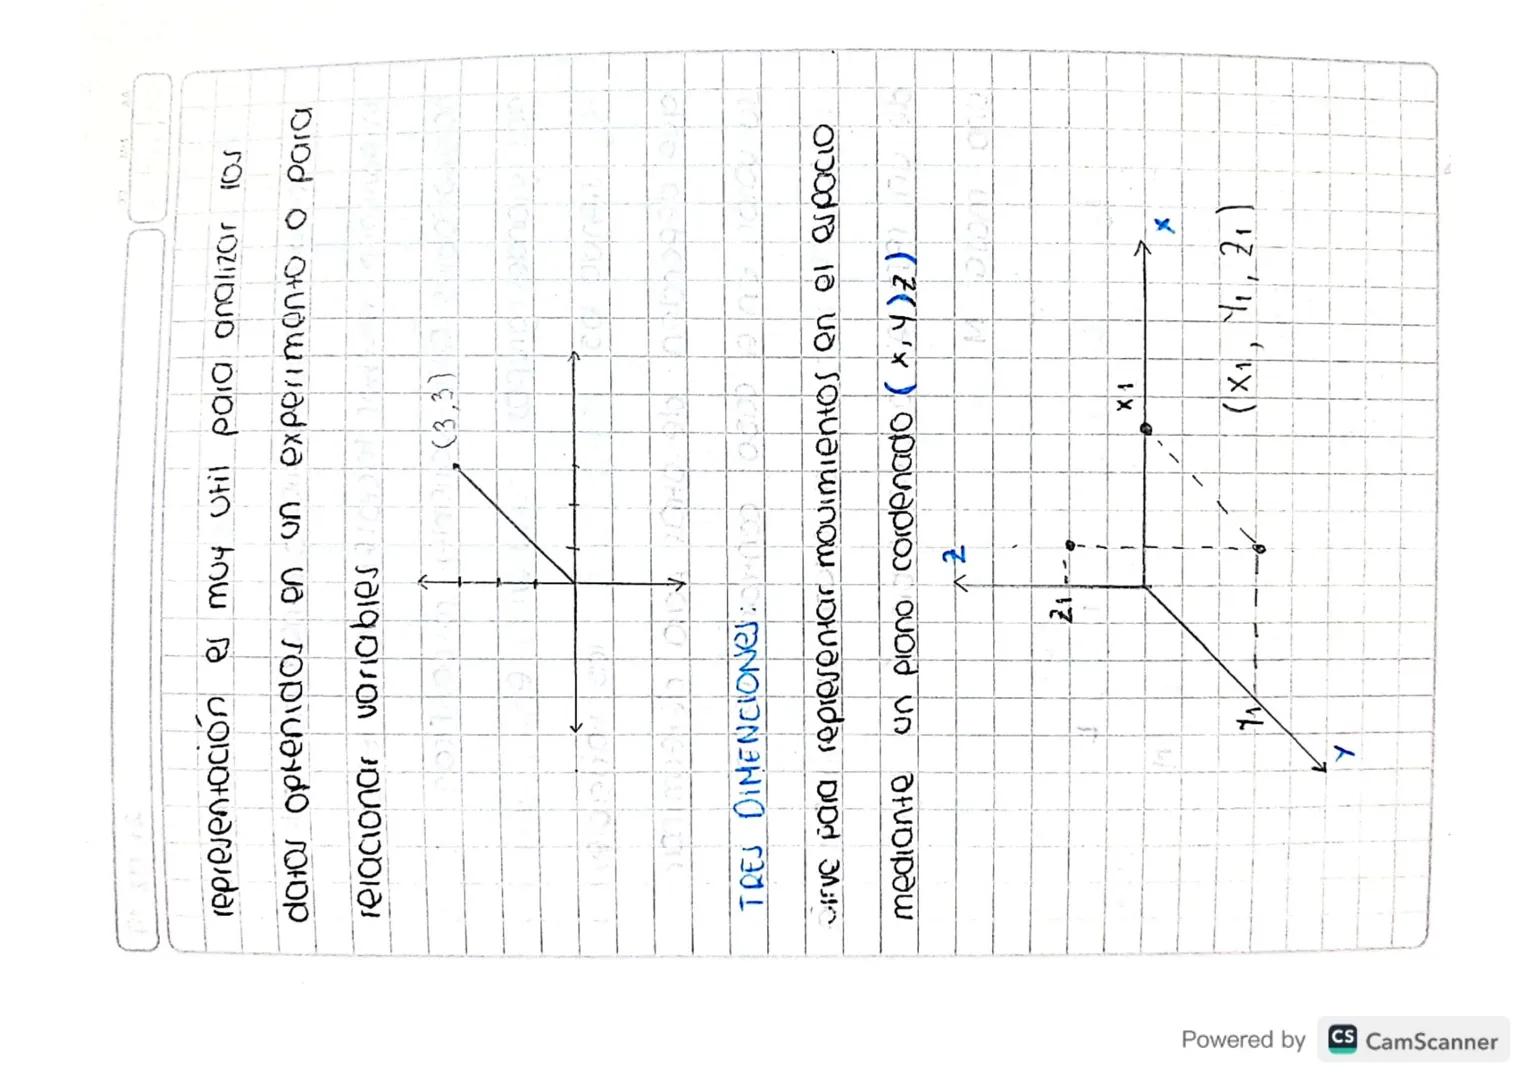 representación es muy util para analizar los
datos optenidos en un experimento o para
relacionar variables
(3,3)
TRES DIMENCIONES:
sirve para representar movimientos en el espacio
mediante un plano cordenado (x,y,z)
Z
Z1
X1
X
Y1
Y
(X1, Y1, Z1)
Powered by CS CamScanner